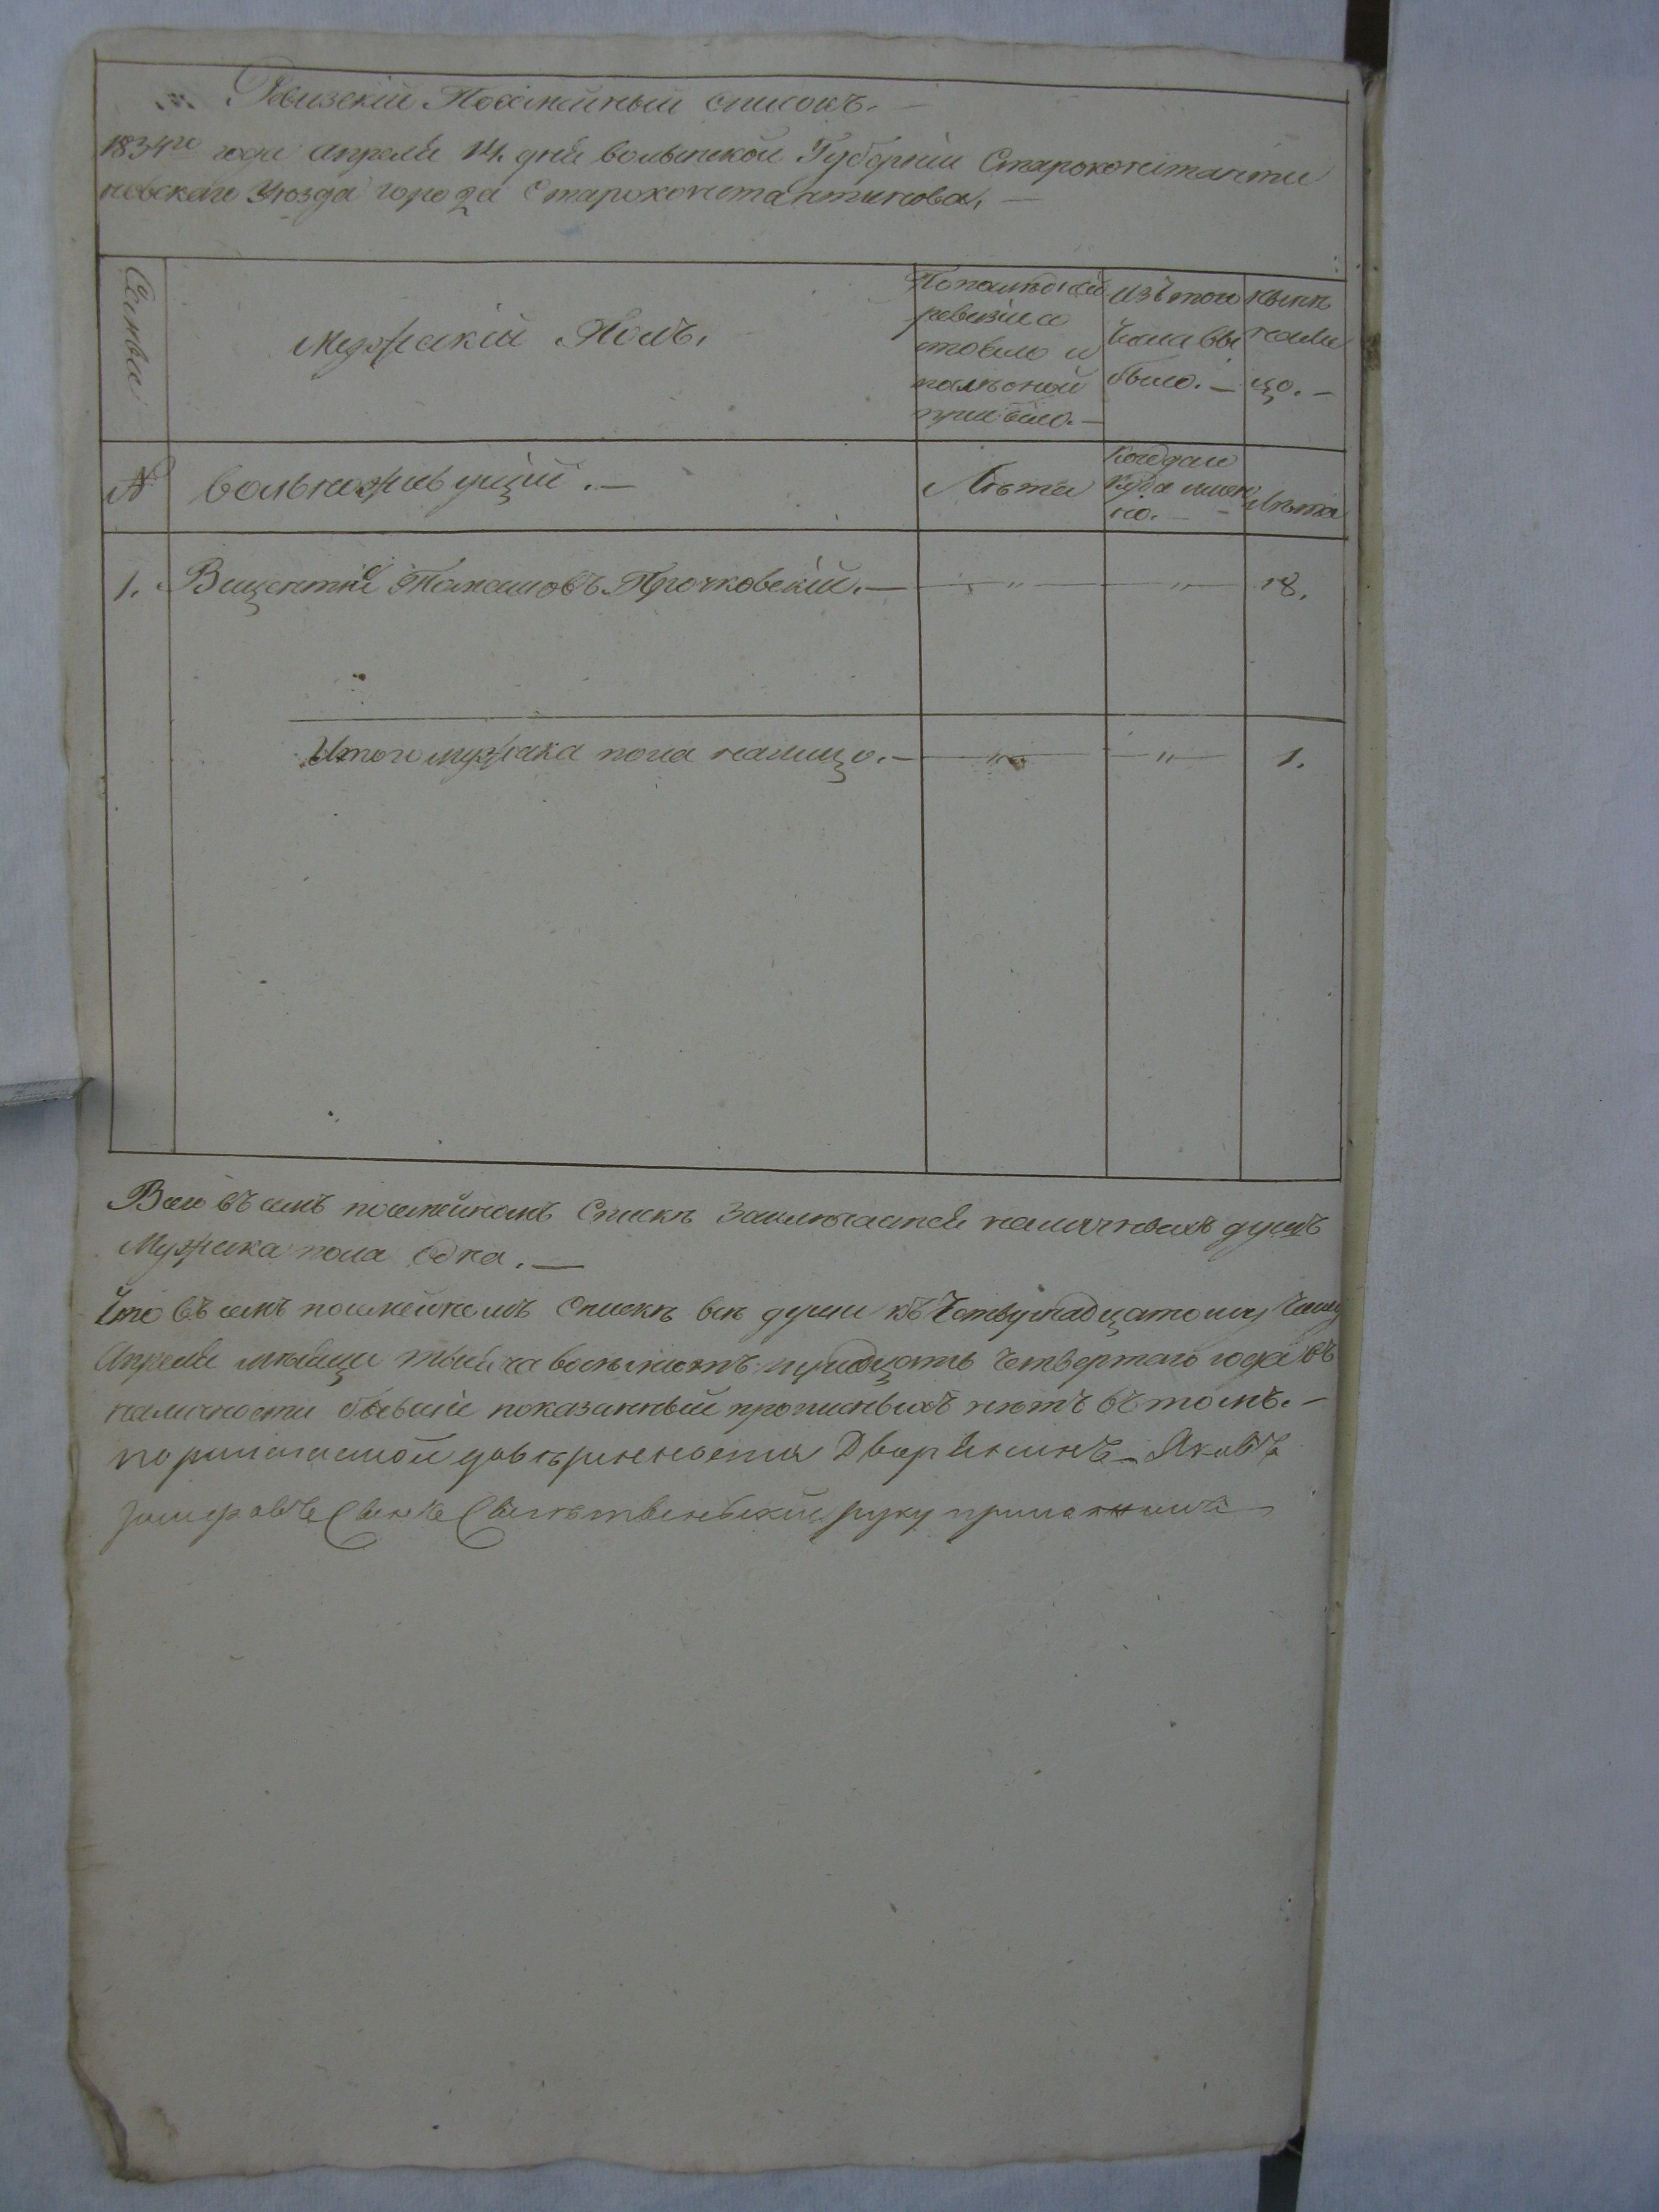 Ревизскій Посемейный списокъ. —
1834го года апреля 14. дня волынской Губерніи Староконстанти
новского Уюзда города Староконстантинова. —
Семьи
Мужескій Полъ.
По последней
ревизіи со
стояло и
после оной
прибыло. —
Изъ того
числа вы
было. —
ныне
нали
цо. —
№
вольноживущій. —
Лѣта
Когда и
куда имен
но. —
Лѣта
1. Вицентий Томашовъ Прочковскій. — — " — — " — 18.
Итого мужеска пола налицо. — — " — — " — 1.
Всего въ семъ посемейномъ Спискѣ Заключается наличныхъ душъ
Мужеска пола Одна. —
Что въ семъ посемейномъ Спискѣ всѣ души къ Четвернадцатому Числу
Апреля мѣсяца тысяча восемсотъ тридцать Четвертаго года въ
наличности бывшіе показанный прописныхъ нѣтъ въ томъ. —
по довѣренности Дворянинъ Яковъ
Сынъ руку приложилъ